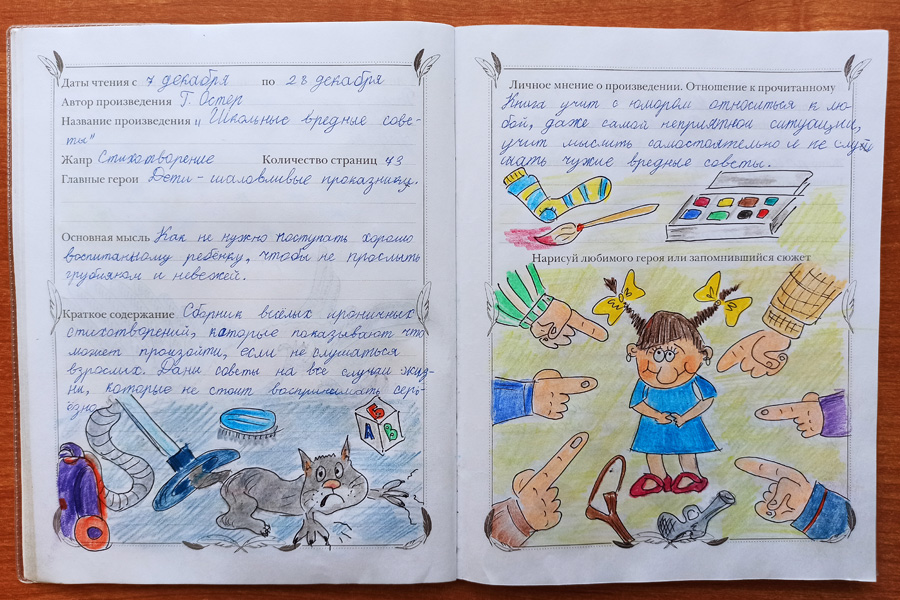 Даты чтения с 7 декабря по 28 декабря
Автор произведения Г. Остер
Название произведения „Школьные вредные сове-
ты"
Жанр Стихотворение Количество страниц 43
Главные герои Дети - шаловливые проказники.
Основная мысль Как не нужно поступать хорошо
воспитанному ребёнку, чтобы не прослыть
грубияном и невежей.
Краткое содержание Сборник весёлых ироничных
стихотворений, которые показывают что
может произойти, если не слушаться
взрослых. Даны советы на все случаи жиз-
ни, которые не стоит воспринимать серь-
ёзно
Б
А
В
Личное мнение о произведении. Отношение к прочитанному
Книга учит с юмором относиться к лю-
бой, даже самой неприятной ситуации,
учит мыслить самостоятельно и не слу-
шать чужие вредные советы.
Нарисуй любимого героя или запомнившийся сюжет